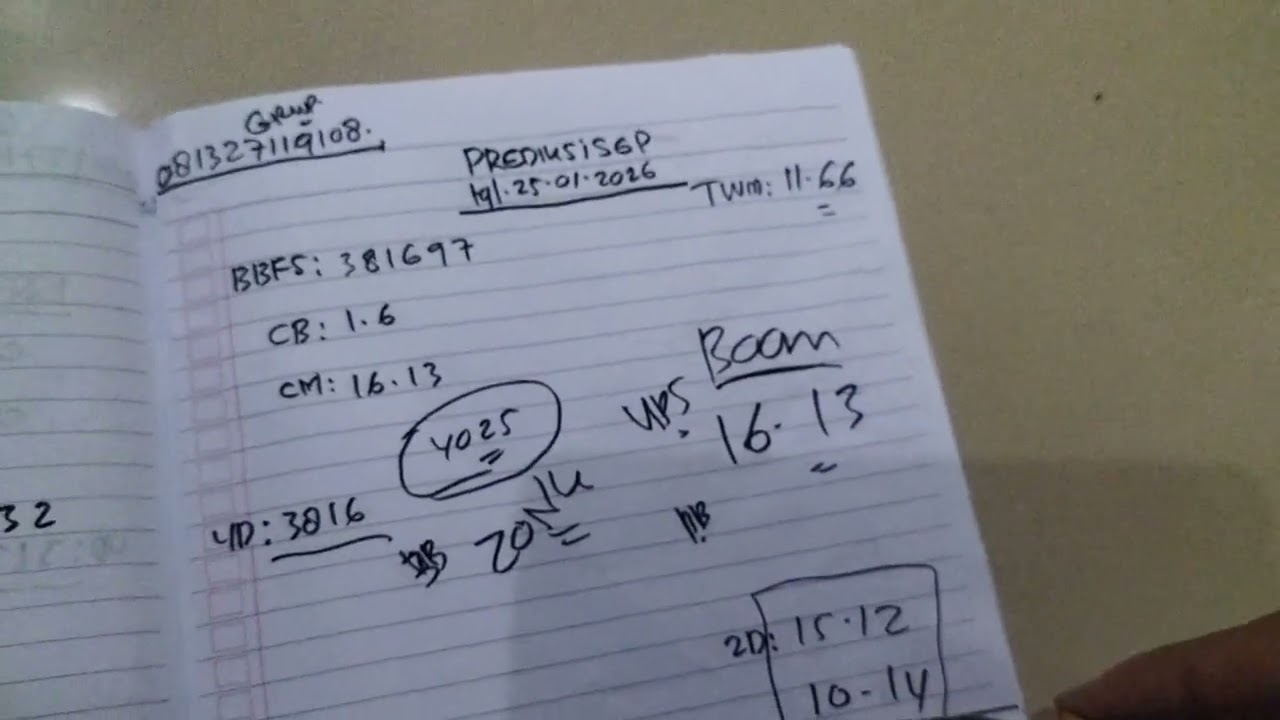 Grup
081327119108.
PREDIKSI SGP
tgl.25.01.2026
TWM: 11.66
BBFS: 381697
CB: 1.6
CM: 16.13
Boom
16.13
4025
4D: 3816
32
2D: 15.12
10-14